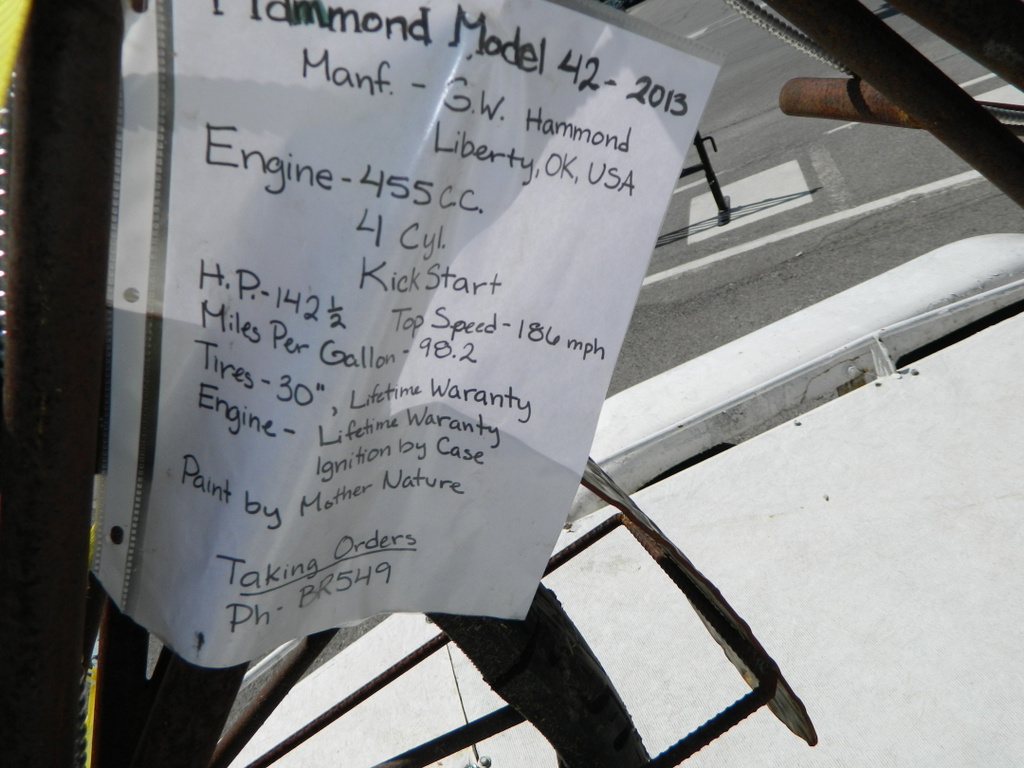 Hammond Model 42 - 2013
Manf. - G.W. Hammond
Liberty, OK, USA
Engine - 455 C.C.
4 Cyl.
Kick Start
H.P. - 142 ½ Top Speed - 186 mph
Miles Per Gallon - 98.2
Tires - 30", Lifetime Waranty
Engine - Lifetime Waranty
Ignition by Case
Paint by Mother Nature
Taking Orders
Ph - BR549